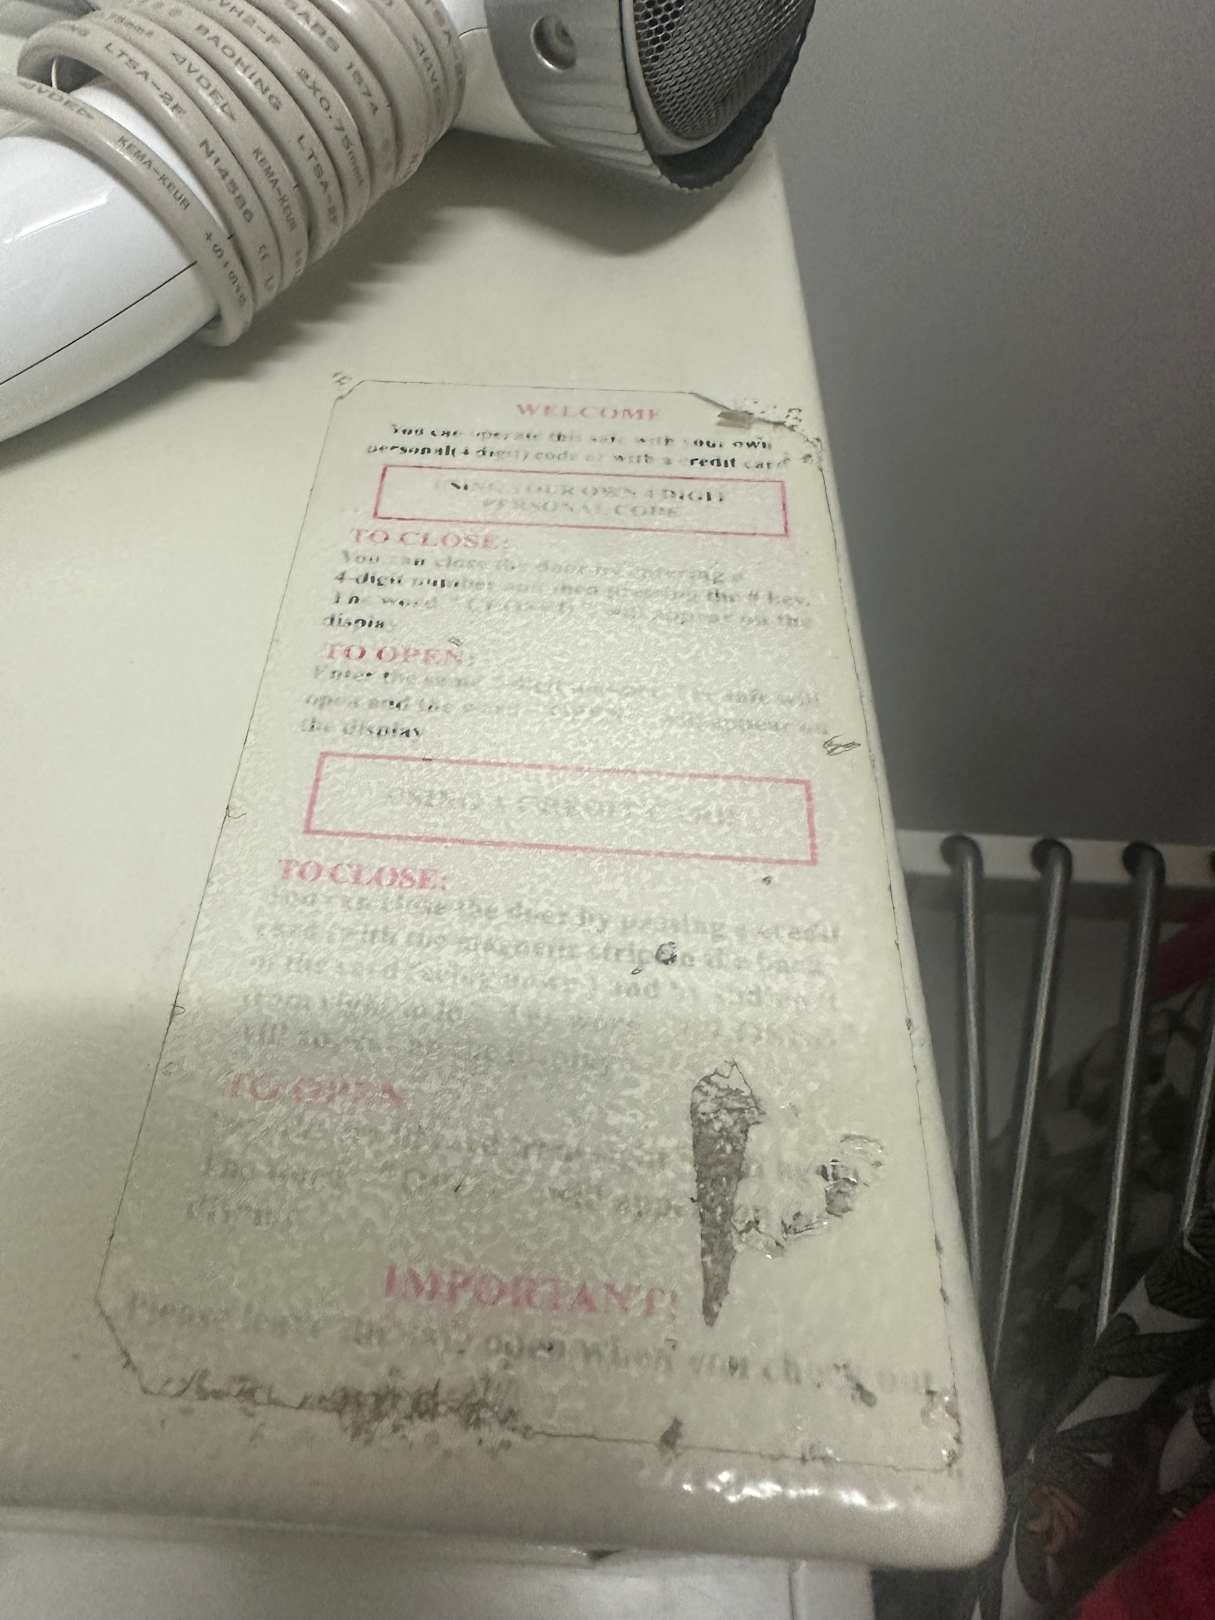 RADHING
LTSA-2F
N14586
KEMA-KEUR
SABS 1574
2X0.75mm²
WELCOME
You can operate this safe with your own
personal(4 digit) code or with a credit card
USING YOUR OWN 4 DIGIT
PERSONAL CODE
TO CLOSE:
You can close the door by entering a
4-digit number and then pressing the # key.
The word " CLOSED " will appear on the
display
TO OPEN:
Enter the same 4-digit number. The safe will
open and the word will appear on
the display
USING A CREDIT CARD
TO CLOSE:
You can close the door by passing a credit
card (with the magnetic strip on the back
of the card facing down) and by
from right to left. The word
will appear on the display
TO OPEN
again
The word will appear on
display
IMPORTANT!
Please leave the safe open when you check out